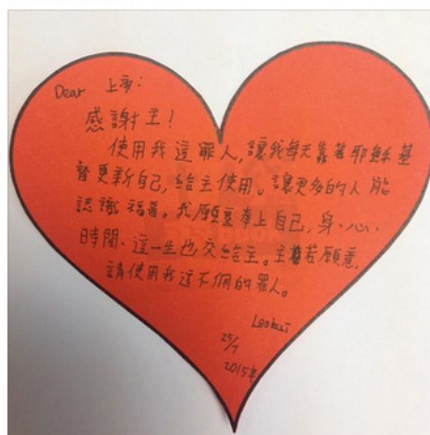 Dear 上帝:
感謝主!
使用我這罪人,讓我每天靠著耶穌基
督更新自己,給主使用。讓更多的人能
認識福音。我願意奉上自己,身、心、
時間、這一生也交給主。主若願意,
請使用我這不佩的罪人。
25/7
2015年